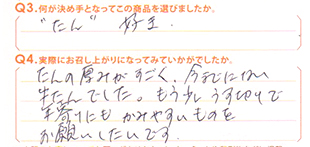 Q3.何が決め手となってこの商品を選びましたか。
"たん" 好き.
Q4.実際にお召し上がりになってみていかがでしたか。
たんの厚みがすごく、今までにない
牛たんでした。もう少しうす切りで
年寄りにも かみやすいものを
お願いしたいです。